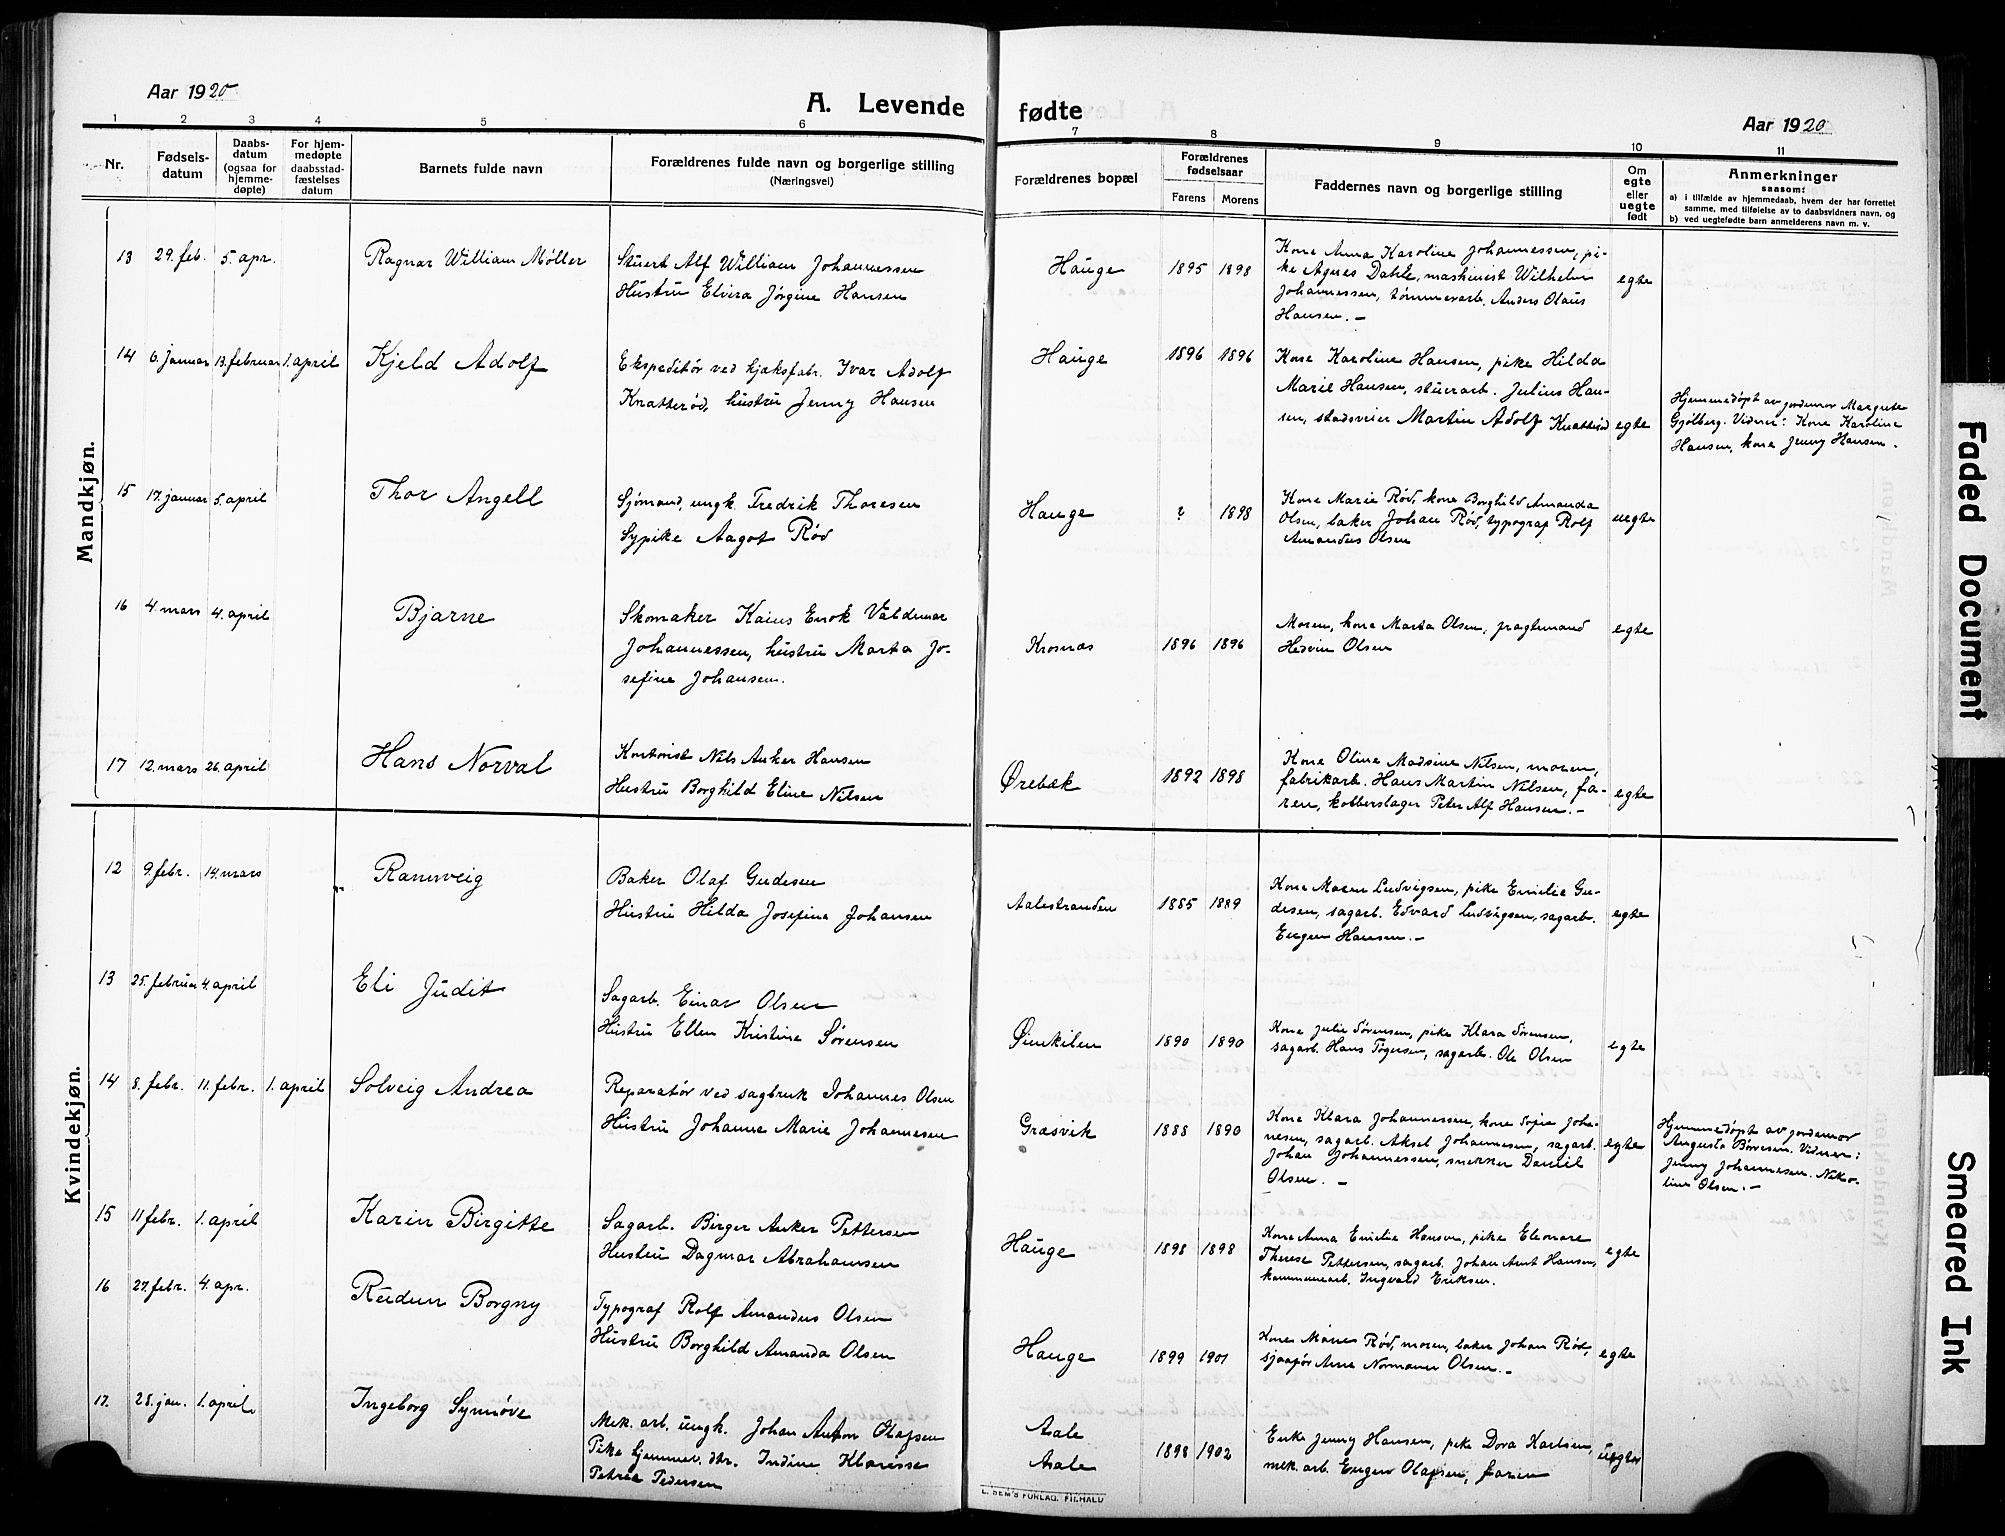 Aar 1920
A. Levende
fødte
Aar 1920
1 2 3 4 5 6 7 8 9 10 11
Nr.
Fødsels-
datum
Daabs-
datum
(ogsaa for
hjemme-
døpte)
For hjem-
medøpte
daabsstad-
fæstelses
datum
Barnets fulde navn
Forældrenes fulde navn og borgerlige stilling
(Næringsvei)
Forældrenes bopæl
Forældrenes
fødselsaar
Farens Morens
Faddernes navn og borgerlige stilling
Om
egte
eller
uegte
født
Anmerkninger
saasom:
a) i tilfælde av hjemmedaab, hvem der har forrettet
samme, med tilføielse av to daabsvidners navn, og
b) ved uegtefødte barn anmelderens navn m. v.
Mandkjøn.
13 29. feb. 5. apr.
Ragnar William Møller
Stuert Alf William Johannessen
Hustru Elvira Jørgine Hansen
Hauge 1895 1898
Kone Anna Karoline Johannessen, pi-
ke Agnes Dahle, maskinist Wilhelm
Johannessen, tømmerarb. Anders Olaus
Hansen. –
egte
14 6. januar 13. februar 1. april
Kjeld Adolf
Ekspeditør ved kjæksfabr. Ivar Adolf
Knatterød, hustru Jenny Hansen
Hauge 1896 1896
Kone Karoline Hansen, pike Hilda
Marie Hansen, stuerarb. Julius Han-
sen, stadsveier Martin Adolf Knatterød
egte
Hjemmedøpt av jordemor Margrete
Gjølberg. Vidner: Kone Karoline
Hansen, kone Jenny Hansen.
15 17. januar 5. april
Thor Angell
Sjømand, ungk. Fredrik Thoresen
Sypike Aagot Rød
Hauge ? 1898
Kone Marie Rød, kone Borghild Amanda
Olsen, baker Johan Rød, typograf Rolf
Amandus Olsen
uegte
16 4. mars 4. april
Bjarne
Skomaker Kaius Enok Valdemar
Johannessen, hustru Marta Jo-
sefine Johansen.
Krosnæs 1896 1896
Moren, kone Marta Olsen, fragtemand
Hedvin Olsen
egte
17 12. mars 26. april
Hans Norval
Kontorist Nils Anker Hansen
Hustru Borghild Eline Nilsen
Ørebæk 1892 1898
Kone Oline Madsine Nilsen, moren,
fabrikarb. Hans Martin Nilsen, fa-
ren, kobberslager Peter Alf Hansen. –
egte
Kvindekjøn.
12 9. febr. 14. mars
Rannveig
Baker Olaf Gudesen
Hustru Hilda Josefine Johansen
Aalestranden 1885 1889
Kone Maren Ludvigsen, pike Emilie Gu-
desen, sagarb. Edvard Ludvigsen, sagarb.
Eugen Hansen. –
egte
13 25. februar 4. april
Eli Judit
Sagarb. Einar Olsen
Hustru Ellen Kristine Sørensen
Øienkilen 1890 1890
Kone Julie Sørensen, pike Klara Sørensen,
sagarb. Hans Togersen, sagarb. Ole Olsen
egte
14 8. febr. 11. febr. 1. april
Solveig Andrea
Reparatør ved sagbruk Johannes Olsen
Hustru Johanne Marie Johannesen
Græsvik 1888 1890
Kone Klara Johannessen, kone Sofie Joha-
nesen, sagarb. Aksel Johannesen, sagarb.
Johan Johannessen, snekker Daniel
Olsen. –
egte
Hjemmedøpt av jordemor
Augusta Børresen. Vidner:
Jenny Johannesen. Niko-
line Olsen. –
15 11. febr. 1. april
Karin Birgitte
Sagarb. Birger Anker Pettersen
Hustru Dagmar Abrahamsen
Hauge 1898 1898
Kone Anna Emilie Hansen, pike Eleonore
Therese Pettersen, sagarb. Johan Arnt Hansen,
kommunearb. Ingvald Eriksen.
egte
16 27. febr. 4. apr.
Reidun Borgny
Typograf Rolf Amandus Olsen
Hustru Borghild Amanda Olsen
Hauge 1899 1901
Kone Marie Rød, moren, baker Johan Rød,
sjaafør Arne Normann Olsen. –
egte
17. 28. jan. 1. april
Ingeborg Synnøve
Mek. arb. ungk. Johan Anton Olafsen
Pike hjemmev. dtr. Indine Klarisse
Petrea Pedersen
Aale
Aale
1898 1902
Enke Jenny Hansen, pike Dora Karlsen,
mek. arb. Eugen Olafsen, faren
uegte
E. SEM'S FORLAG, FR.HALD
Faded Document
Smeared Ink